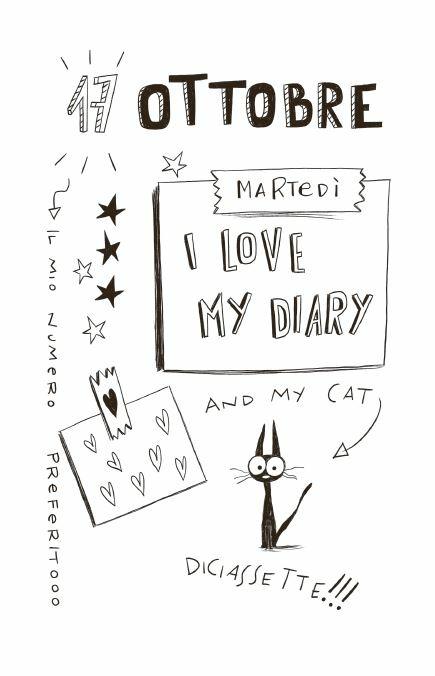 17 OTTOBRE
MARTEDÌ
I LOVE
MY DIARY
IL MIO NUMERO PREFERITOOO
AND MY CAT
DICIASSETTE!!!